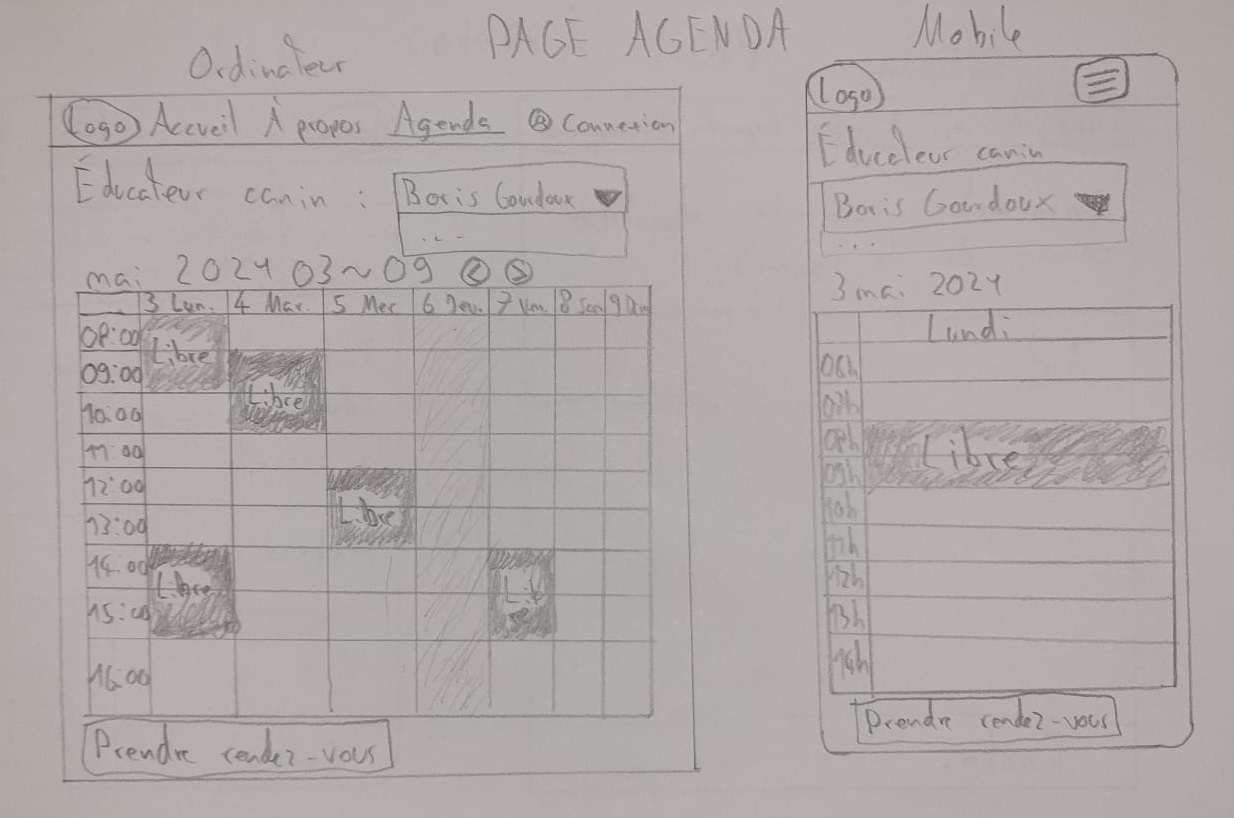 PAGE AGENDA
Ordinateur
Logo Accueil À propos Agenda Connexion
Éducateur canin : Boris Gourdoux
...
mai 2024 03~09 < >
3 Lun. 4 Mar. 5 Mer 6 Jeu. 7 Ven. 8 Sam 9 Dim
08:00 Libre
09:00 Libre
10:00
11:00
12:00 Libre
13:00
14:00 Libre Lib
15:00 re
16:00
Prendre rendez-vous
Mobile
Logo
Éducateur canin
Boris Gourdoux
...
3 mai 2024
Lundi
06h
07h
08h Libre
09h
10h
11h
12h
13h
14h
Prendre rendez-vous